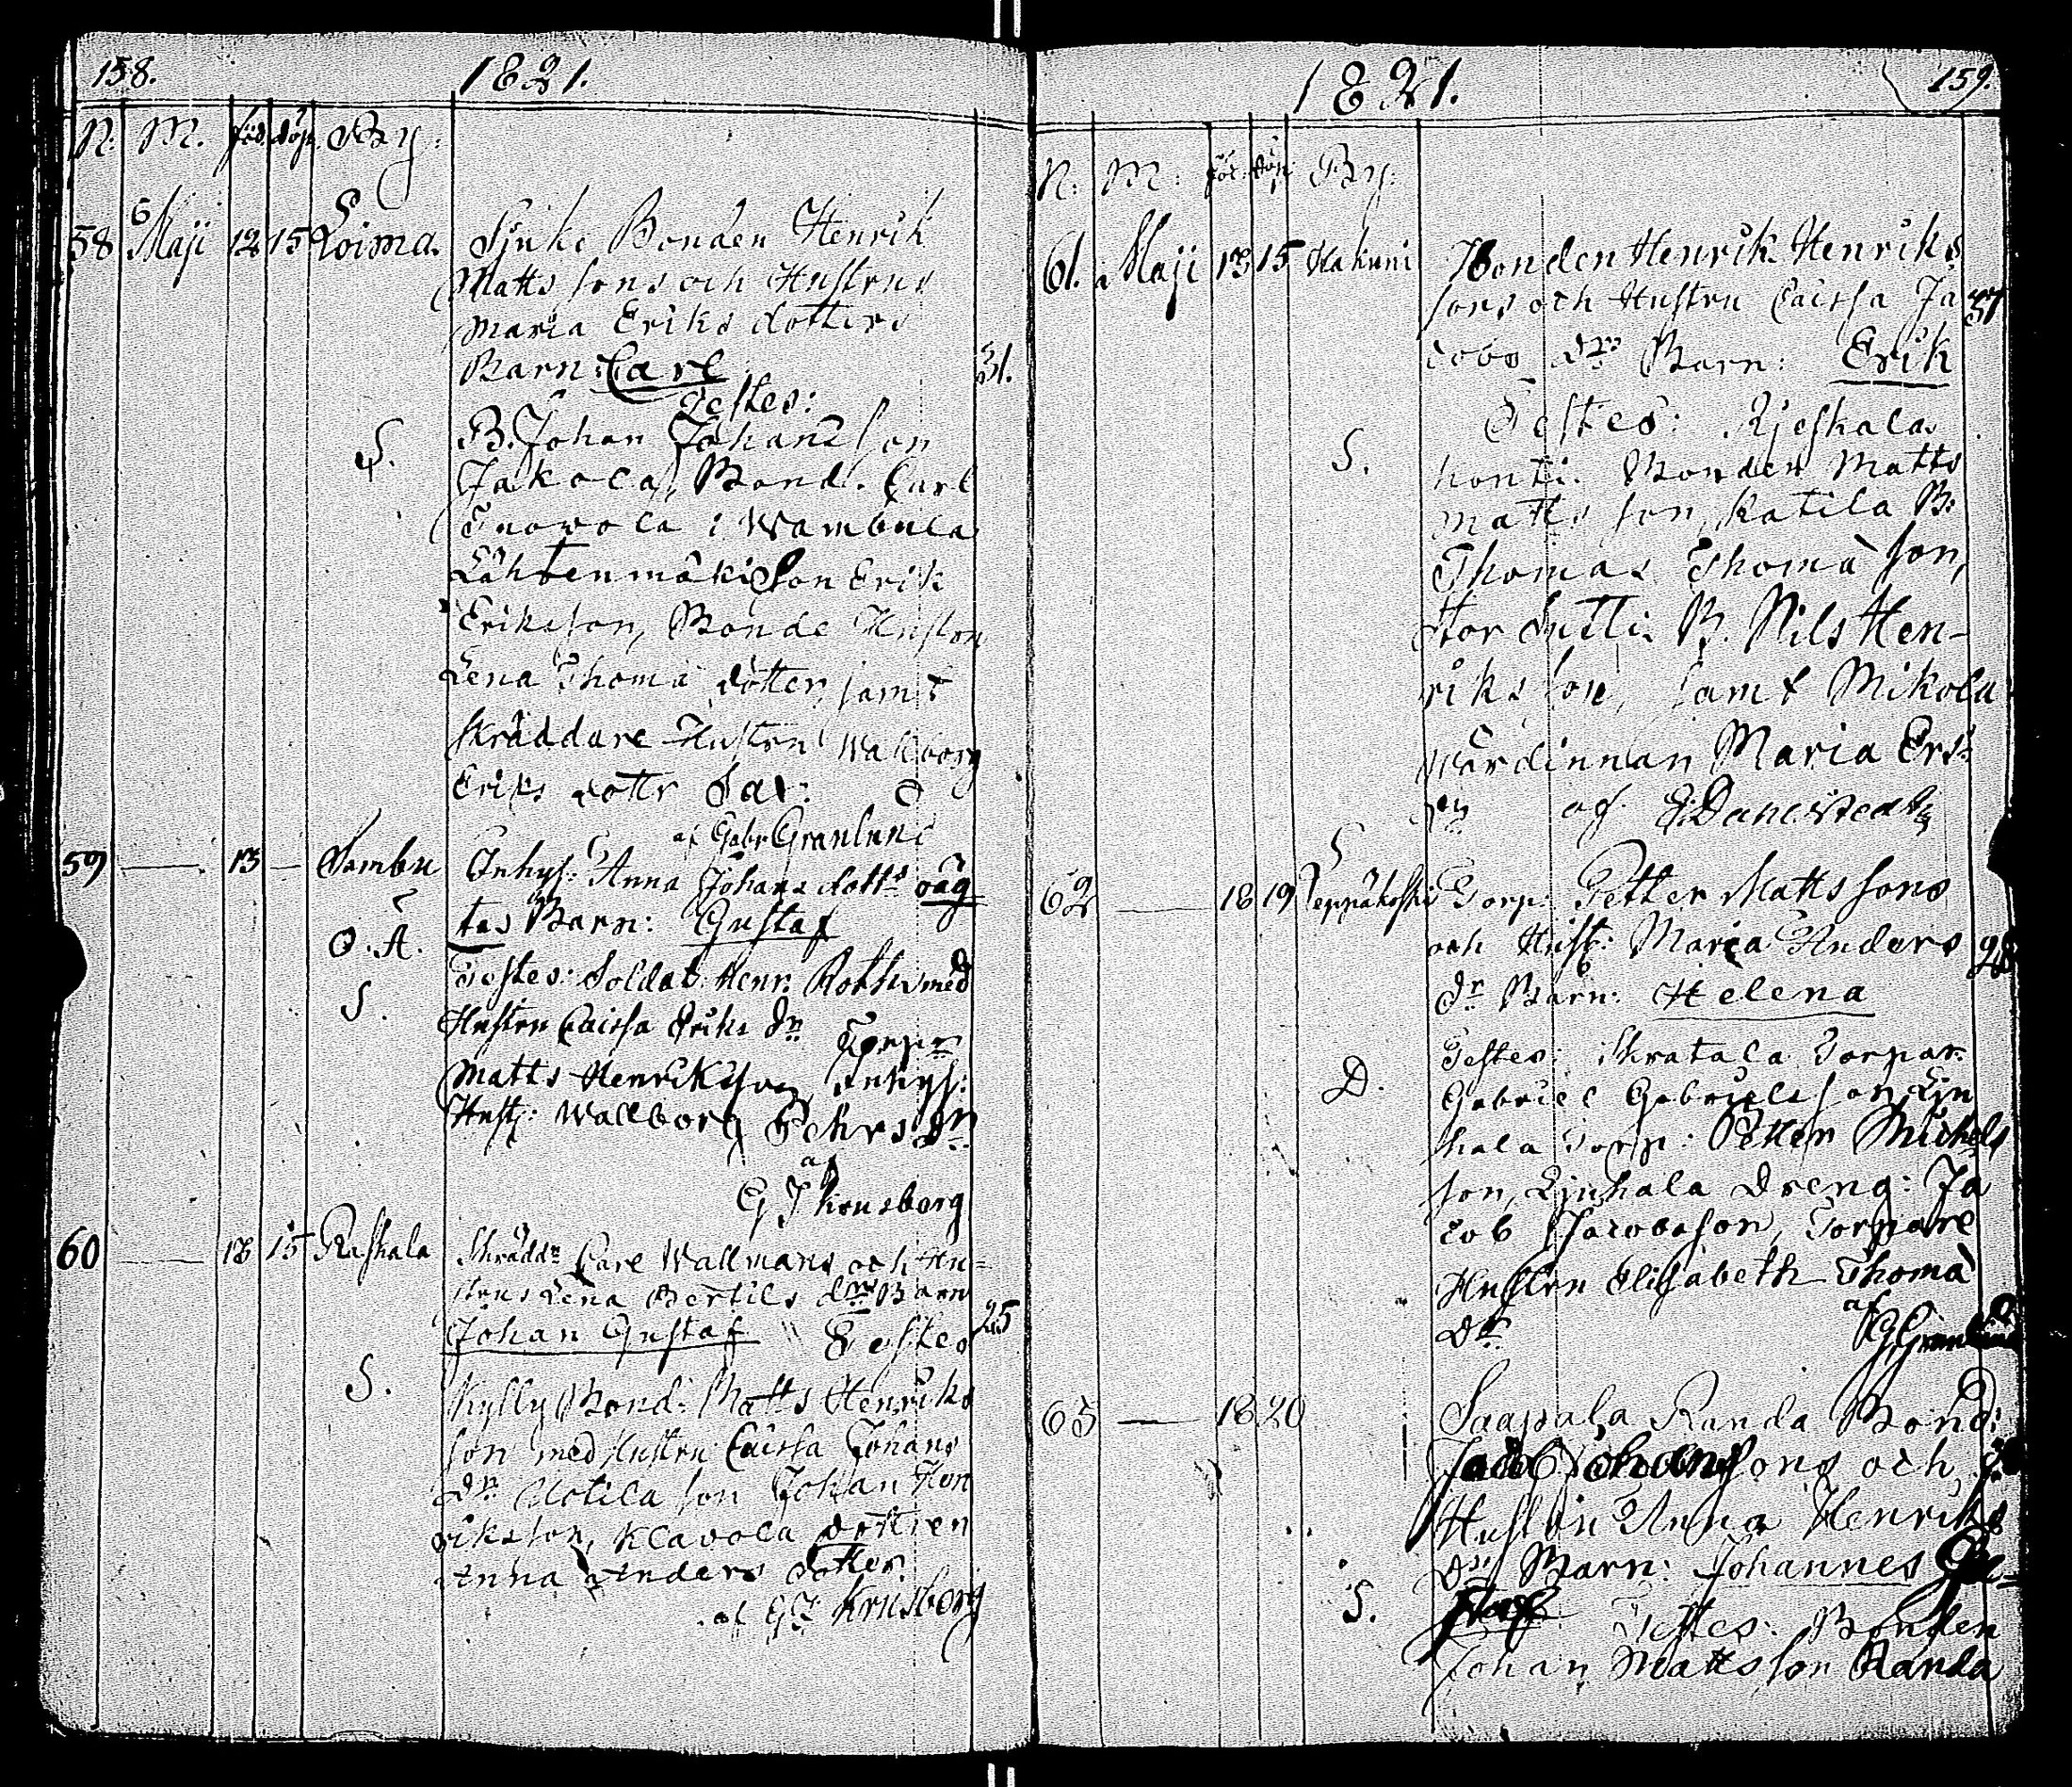 158.
1821.
N. M. föd. döp. By:
58 Maji 12 15 Loima.
Sjuke Bonden Henrik
Matts sons och Hustrus
Maria Eriks dotters
Barn: Carl
31.
Testes:
S.
B. Johan Johansson
Jakola, Bond. Carl
i Wambula
Lähtenmäki Son Erik
Eriksson, Bonde Hustrun
Lena Thomä dotter, samt
skräddare Hustru Wallborg
Eriks dottr
af Gabr Granlund
59 — 13 — Sambu
O.Ä.
S.
Inhys: Anna Johans dotts oäg
tas Barn: Gustaf
Testes: Soldat: Henr: Roth med
Hustru Caissa Eriks dr Torpr
Matts Henriksson, Inhys:
Hust: Wallborg Pehrs dr
af
60 — 13 15 Raskala
S.
Skräddr Carl Wallmans och Hu-
strus Lena Bertils drs Barn
Johan Gustaf Testes
25
Kylly Bond: Matts Henriks
son med Hustru Caissa Johans
dr Uotila son Johan Hen
riksson, Klavola dottren
Anna Anders dotter.
af
1821.
159.
N: M: föd: döp: By:
61. Maji 13 15 Hakuni
S.
Bonden Henrik Henriks
sons och Hustru Caissa Ja
37
cobs drs Barn: Erik
Testes:
Bonden Matts
Matts son, Katila B:
Thomas Thomä son,
B. Nils Hen-
riksson, samt Mikola
Wärdinnan Maria Ers
dr af
62 — 18 19 Leppäkoski
D.
Torp: Petter Matts sons
och Hust: Maria Anders
28
dr Barn: Helena
Testes: Torpar.
Gabriel Gabrielsson Lin
hala Torp: Petter Michels
son, Dreng: Ja
cob Jacobsson, Torpare
Hustru Elisabeth Thomä
dr
af
63 — 18 20
S.
Saapala Randa Bond:
sons och
Hustru Anna Henriks
dr Barn: Johannes Gu-
staf Testes: Bonden
Johan Mattsson Randa